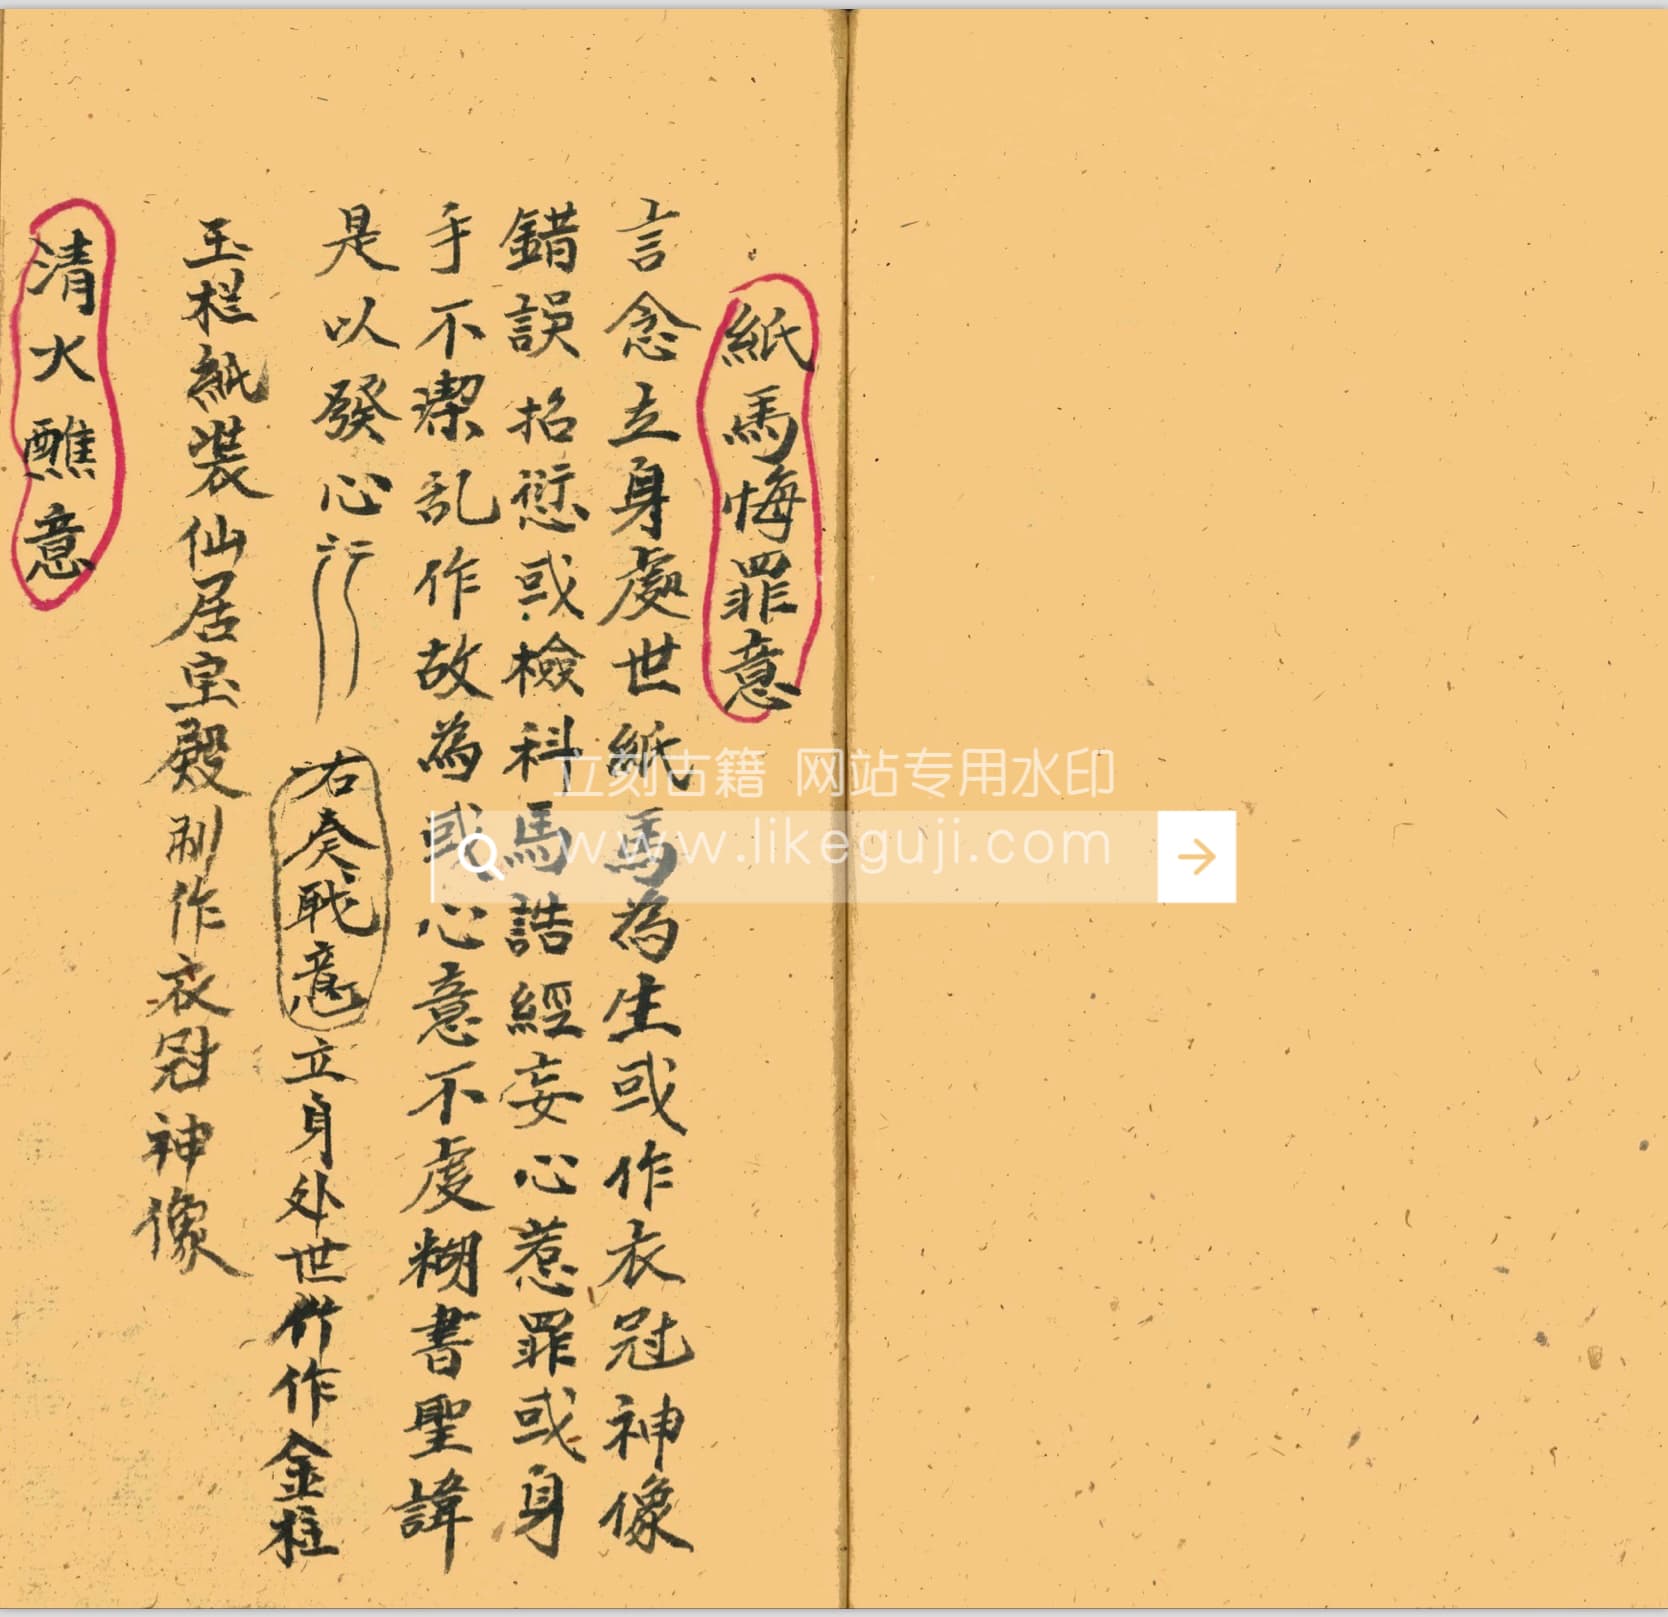 紙馬悔罪意
言念立身處世紙馬為生或作衣冠神像
錯誤招愆或檢科馬誥經妄心惹罪或身
手不潔乱作故為或心意不虔糊書聖諱
是以發心
右奏戰意立身处世竹作金柱
玉栏紙裝仙居宝殿制作衣冠神像
清火醮意
立刻古籍 网站专用水印
www.likeguji.com